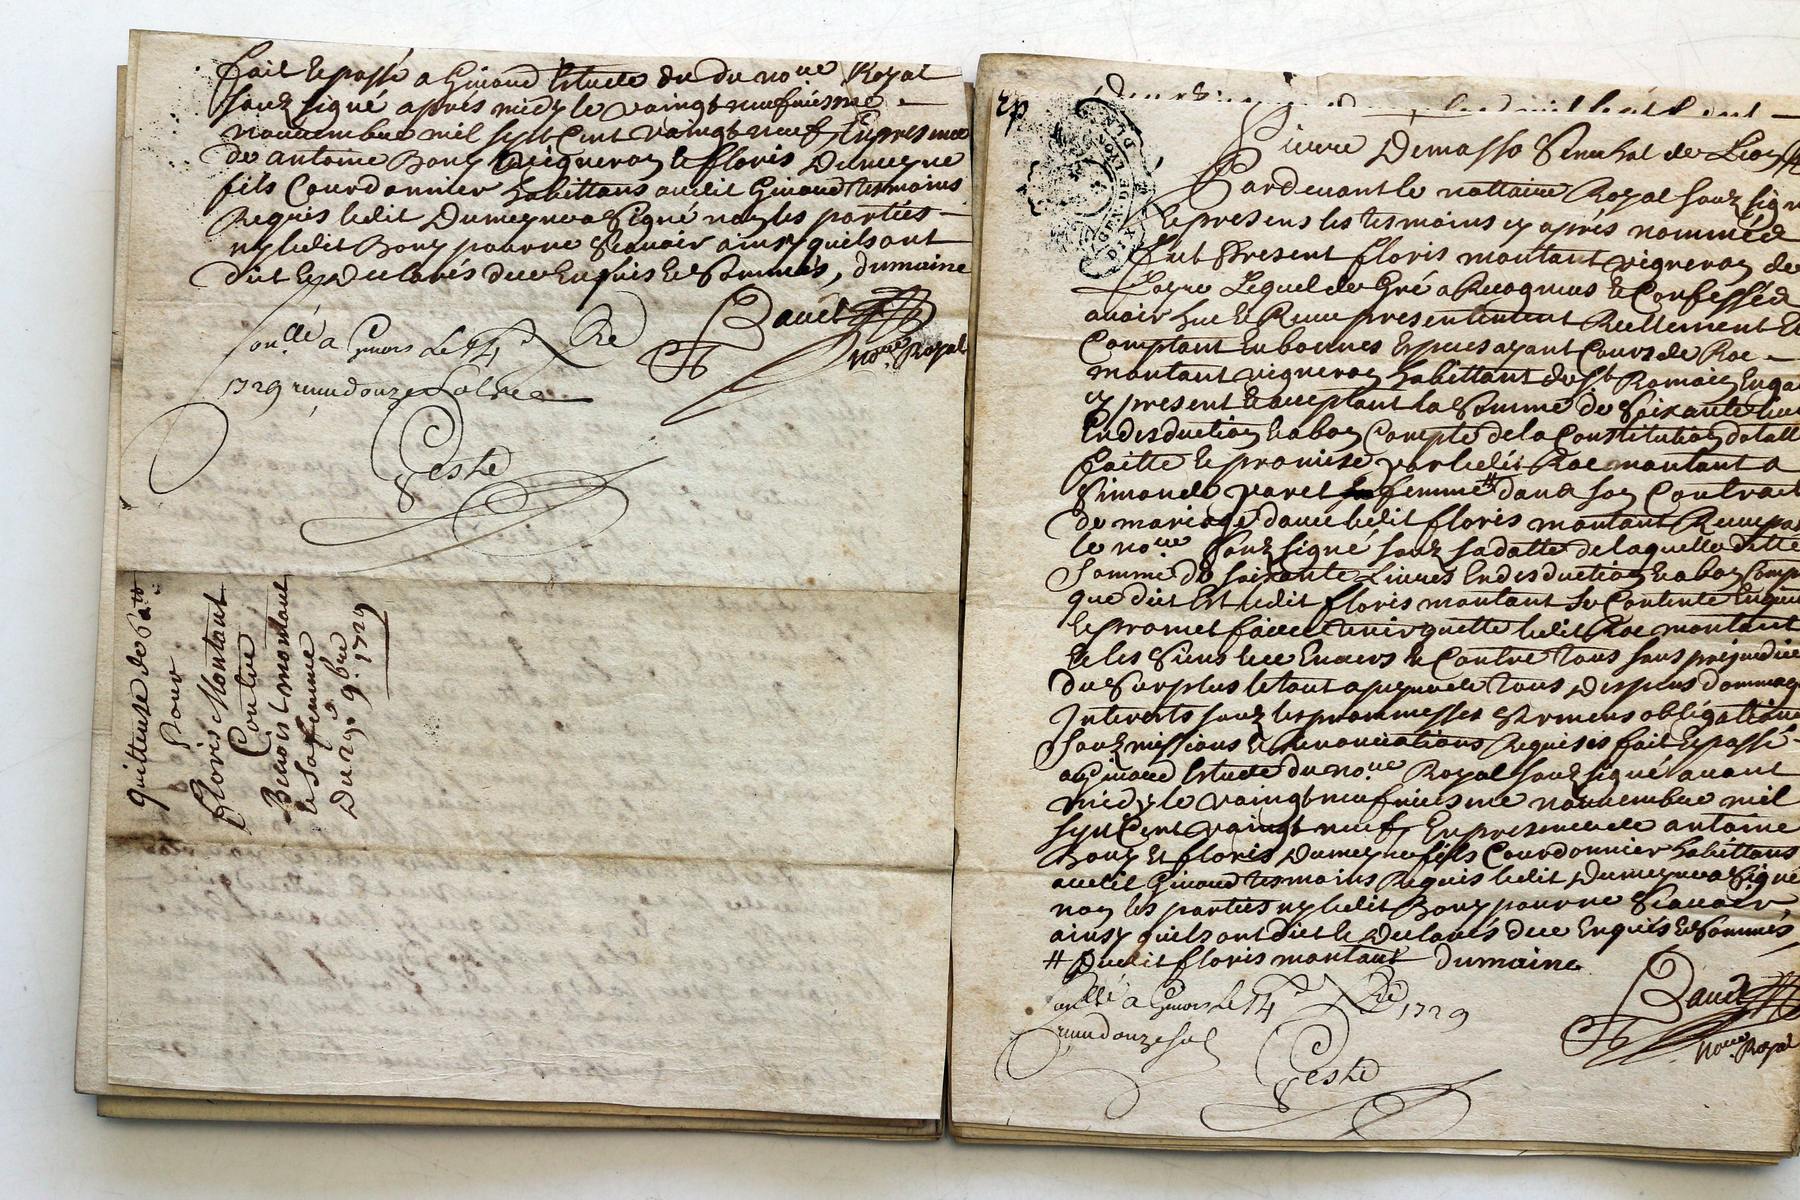 fait et passé a Givord Estude du du no.re Royal
souz signé apres midy le vaingt neufviesme
nouvembre mil sept Cent vaingt neuf, En presence
de antoine Bony vigneron et floris Dumeyne
fils Courdonnier habittans audit Givord tesmoins
Requis ledit Dumeyne a signé non les parties
ny ledit Bony pour ne sçavoir ainsy quils ont
dit et declarés de ce Enquis et sommés, dumaine
Baudet
no.re Royal
on.llé a Givors Le 14.e Xbre
1729 receu douze sols
Geste
quittance de 60 tt
Pour
Floris Montant
Contre
Benoist montant
et sa femme
Du 29.e 9.bre 1729
GEN. DE LYON
DIX DEN.
Pierre Demasso Senechal de Lion
Pardevant le nottaire Royal souz sign
et presens les tesmoins cy aprés nommés
fut Present floris montant vigneron de
Lequel de Gré a Recogneus et Confessés
avoir heu et Receu presentement Reellement Et
Comptant En bonnes Especes ayant Cours de Roc
montant vigneron habittant de St Romain En ga
cy present et acceptant la somme de soixante liv
En desduction et a bon Compte de la Constitution dotall
faitte et promise par ledit Roc montant a
Simonde varet femme # dans son Contrat
de mariage avec ledit floris montant Receu par
le no.re souz signé souz sa datte de laquelle ditte
somme de soixante Livres En desduction et a bon Comp
que dit Est ledit floris montant se Contente En qui
et promet faire tenir quitte ledit Roc montant
et les siens Envers et Contre tous sans prejudice
du surplus le tout a peyne de tous despens dommag
Interests souz les prommesses sermens obligations
souzmissions et Renonciations Requises fait et passé
a Givord Estude du no.re Royal souz signé avant
midy le vaingt neufviesme nouvembre mil
sept Cent vaingt neuf, En presence de antoine
Bony Et floris Dumeyne fils Courdonnier habittans
audit Givord tesmoins Requis ledit Dumeyne a signé
non les parties ny ledit Bony pour ne sçavoir
ainsy quils ont dit et declarés de ce Enquis et sommés
# Dudit floris montant dumaine
Baudet
no.re Royal
on.llé a Givors Le 14.e Xbre 1729
receu douze sols
Geste